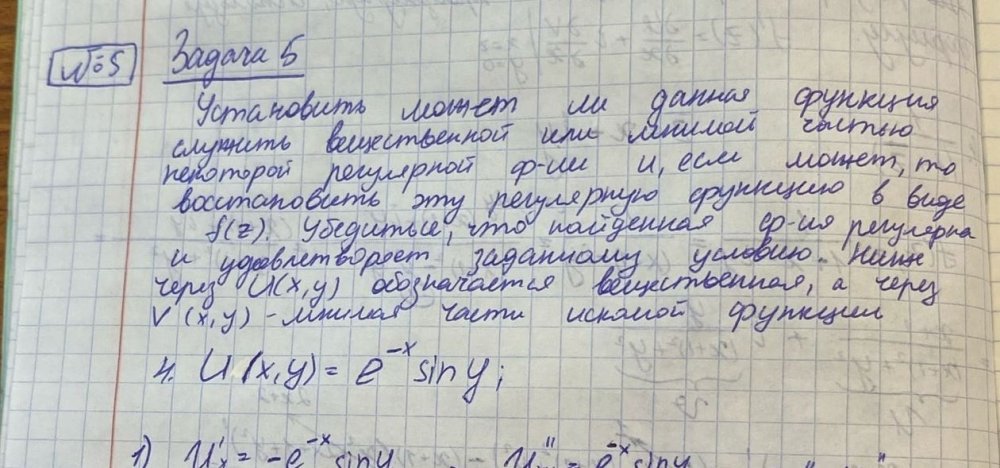 №5 Задача 5
Установить может ли данная функция
служить вещественной или мнимой частью
некоторой регулярной ф-ии и, если может, то
восстановить эту регулярную функцию в виде
f(z). Убедиться, что найденная ф-ия регулярна
и удовлетворяет заданному условию. Ниже
через U(x,y) обозначается вещественная, а через
V(x,y) - мнимая части искомой функции
4. U(x,y) = e^{-x} sin y;
1) U'_x = -e^{-x} sin y